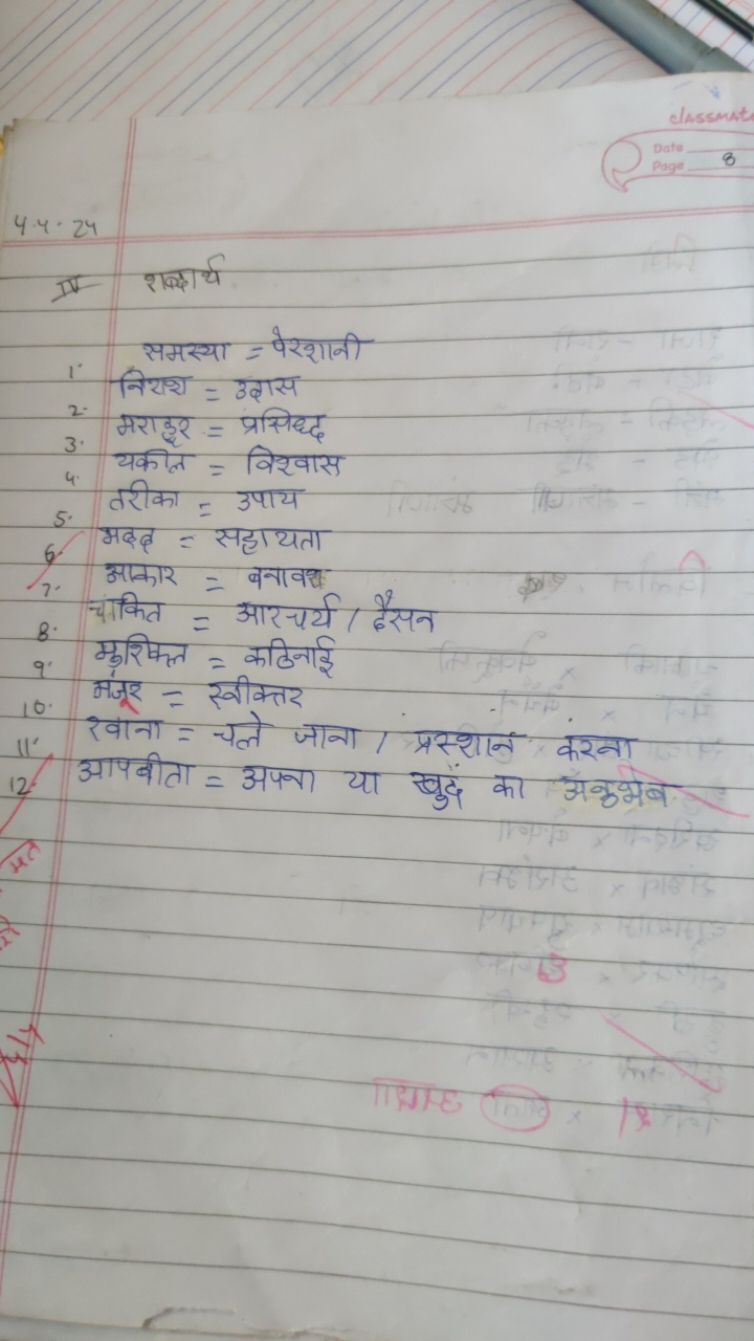 classmate
Date
Page 8
4.4.24
IV शब्दार्थ
1. समस्या = पेरशानी
2. निराश = उदास
3. मशहूर = प्रसिध्द
4. यकीन = विश्वास
5. तरीका = उपाय
6. मदद = सहायता
7. आकार = बनावट
8. चकित = आश्चर्य / हैरान
9. मुश्किल = कठिनाई
10. मंजूर = स्वीकार
11. रवाना = चले जाना / प्रस्थान करना
12. आपबीती = अपना या खुद का अनुभव